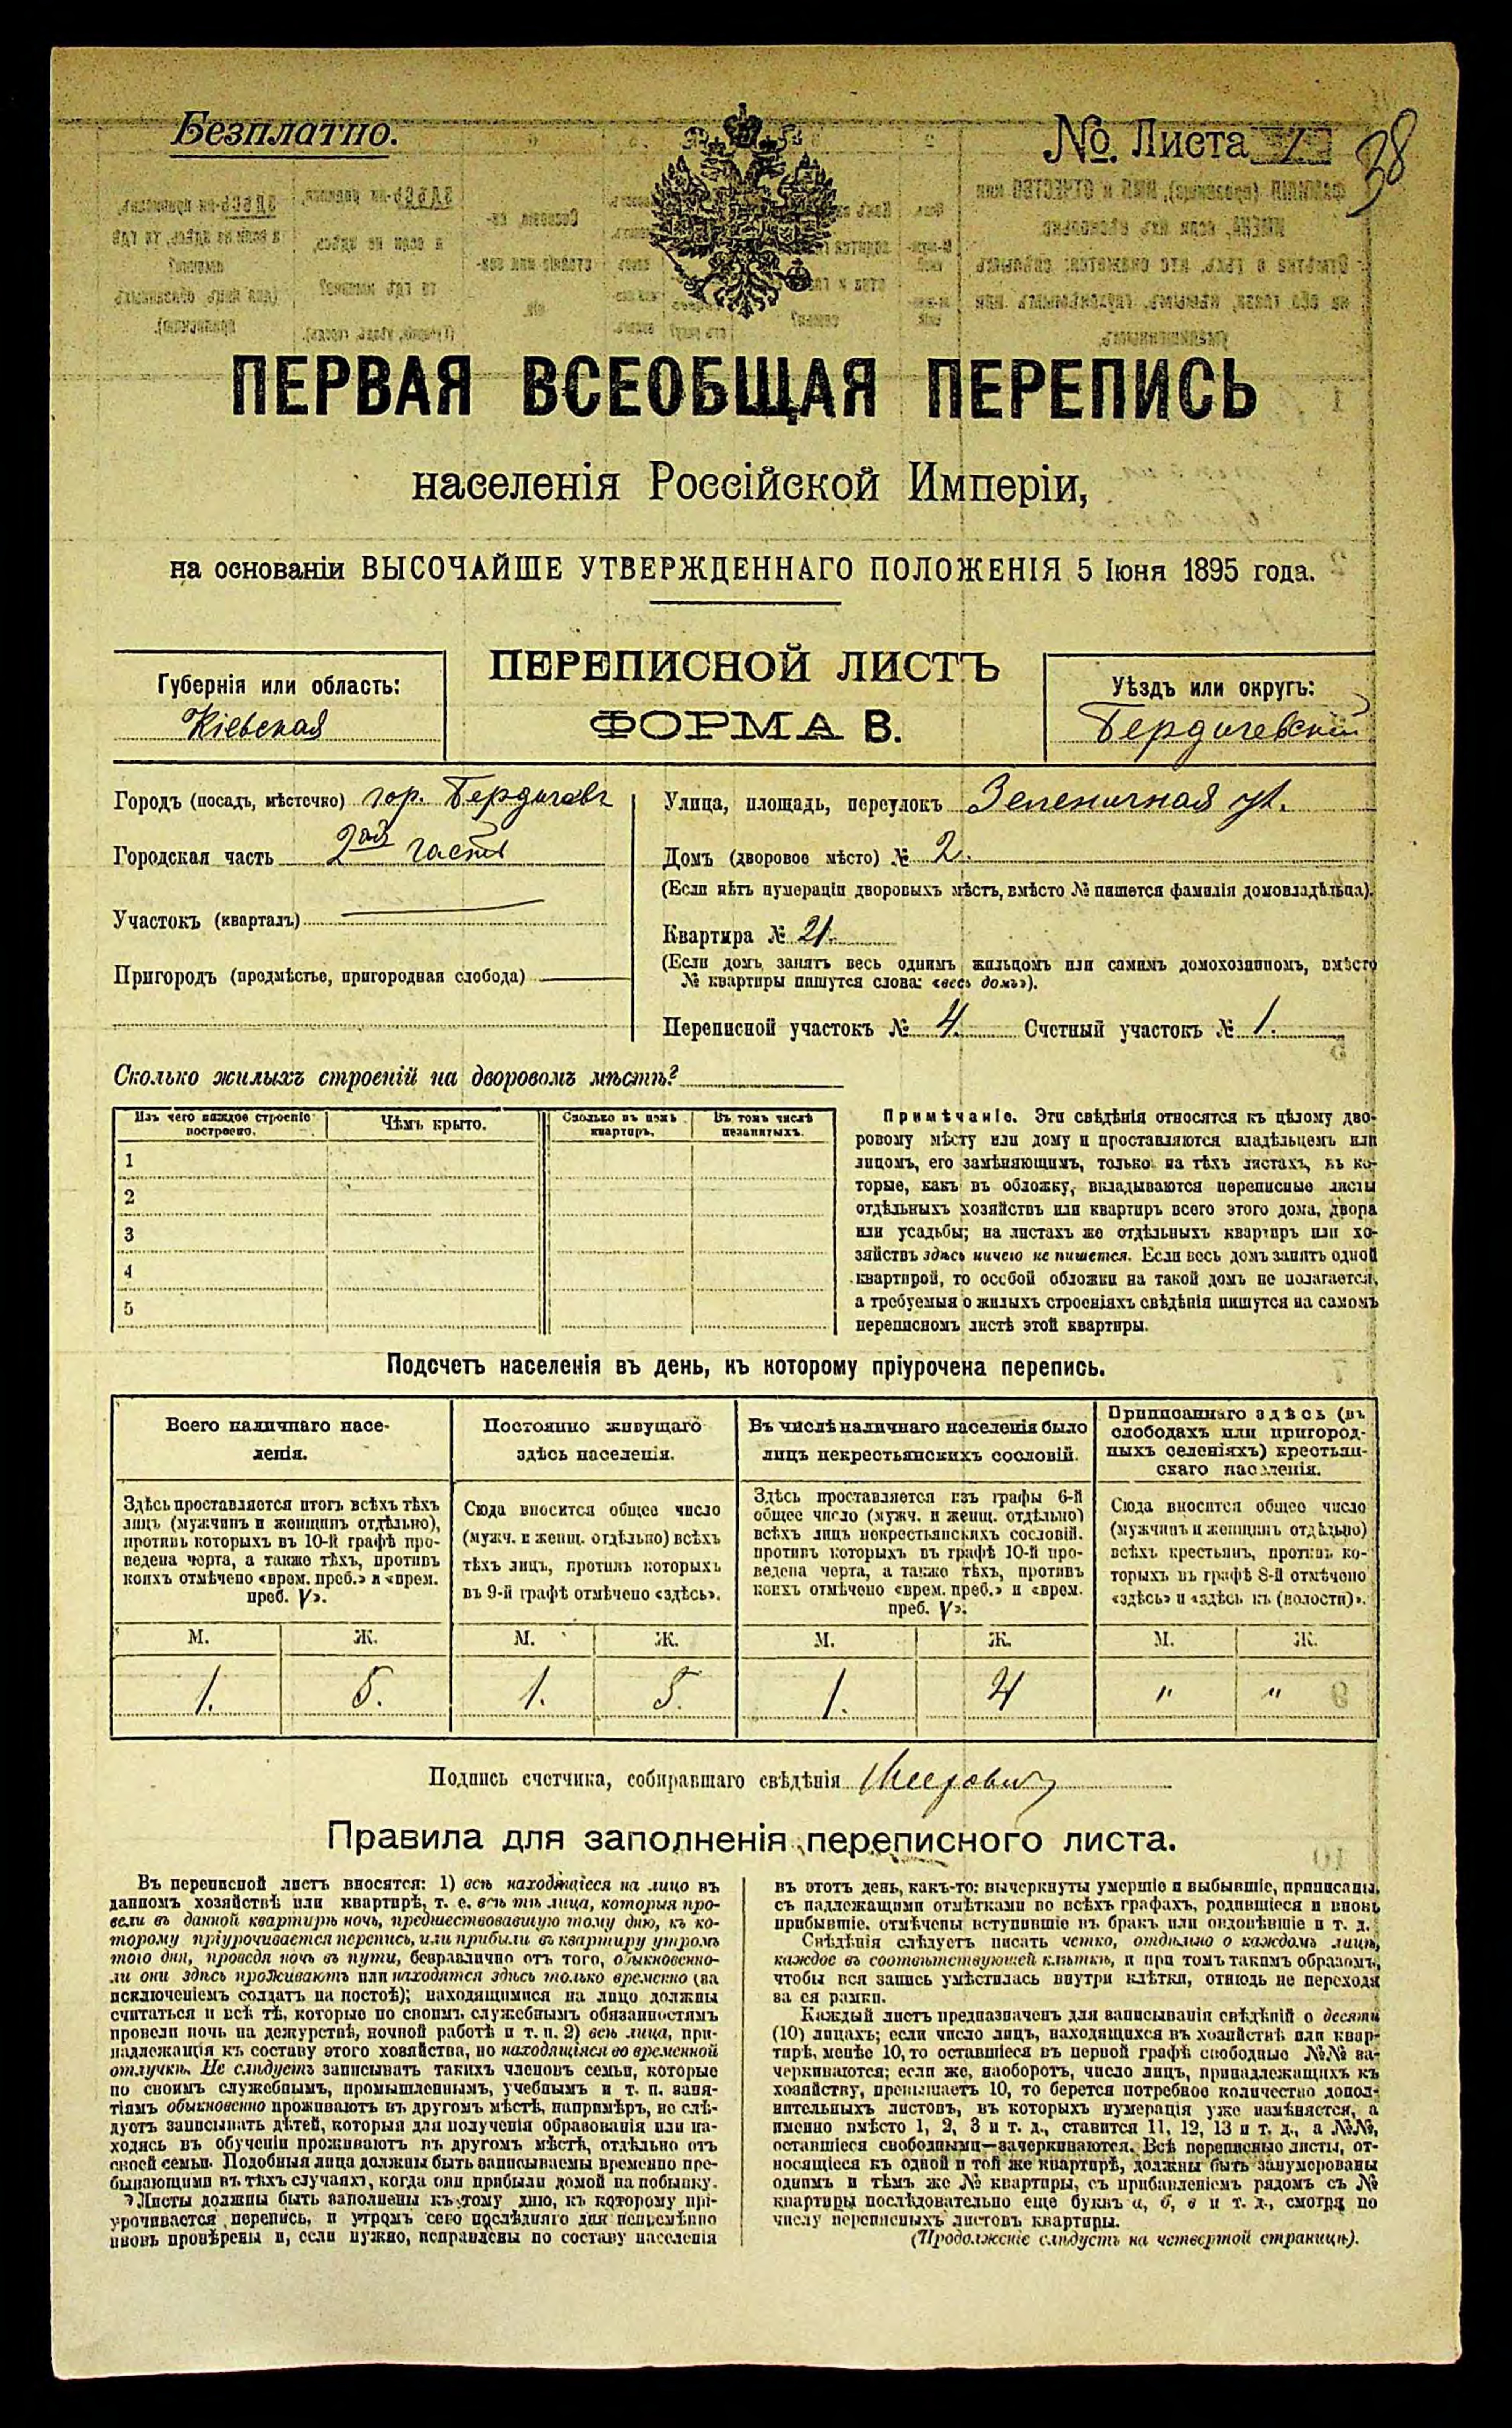 Безплатно.
№. Листа 1
38
ПЕРВАЯ ВСЕОБЩАЯ ПЕРЕПИСЬ
населенія Россійской Имперіи,
на основаніи ВЫСОЧАЙШЕ УТВЕРЖДЕННАГО ПОЛОЖЕНІЯ 5 Іюня 1895 года.
ПЕРЕПИСНОЙ ЛИСТЪ
ФОРМА В.
Губернія или область:
Кіевская
Уѣздъ или округъ:
Бердичевскій
Городъ (посадъ, мѣстечко) гор. Бердичевъ
Городская часть 2ая часть
Участокъ (кварталъ)
Пригородъ (предмѣстье, пригородная слобода)
Улица, площадь, переулокъ ул.
Домъ (дворовое мѣсто) № 2.
(Если нѣтъ нумераціи дворовыхъ мѣстъ, вмѣсто № пишется фамилія домовладѣльца).
Квартира № 21.
(Если домъ занятъ весь однимъ жильцомъ или самимъ домохозяиномъ, вмѣсто
№ квартиры пишутся слова: «весь домъ»).
Переписной участокъ № 4. Счетный участокъ № 1.
Сколько жилыхъ строеній на дворовомъ мѣстѣ?
Изъ чего каждое строеніе построено.
Чѣмъ крыто.
Сколько въ немъ квартиръ.
Въ томъ числѣ незанятыхъ.
1
2
3
4
5
Примѣчаніе. Эти свѣдѣнія относятся къ цѣлому дво-
ровому мѣсту или дому и проставляются владѣльцемъ или
лицомъ, его замѣняющимъ, только на тѣхъ листахъ, въ ко-
торые, какъ въ обложку, вкладываются переписные листы
отдѣльныхъ хозяйствъ или квартиръ всего этого дома, двора
или усадьбы; на листахъ же отдѣльныхъ квартиръ или хо-
зяйствъ здѣсь ничего не пишется. Если весь домъ занятъ одной
квартирой, то особой обложки на такой домъ не полагается,
а требуемыя о жилыхъ строеніяхъ свѣдѣнія пишутся на самомъ
переписномъ листѣ этой квартиры.
Подсчетъ населенія въ день, къ которому пріурочена перепись.
Всего наличнаго насе-
ленія.
Здѣсь проставляется итогъ всѣхъ тѣхъ
лицъ (мужчинъ и женщинъ отдѣльно),
противъ которыхъ въ 10-й графѣ про-
ведена черта, а также тѣхъ, противъ
коихъ отмѣчено «врем. преб.» и «врем.
преб. V».
Постоянно живущаго
здѣсь населенія.
Сюда вносится общее число
(мужч. и женщ. отдѣльно) всѣхъ
тѣхъ лицъ, противъ которыхъ
въ 9-й графѣ отмѣчено «здѣсь».
Въ числѣ наличнаго населенія было
лицъ некрестьянскихъ сословій.
Здѣсь проставляется изъ графы 6-й
общее число (мужч. и женщ. отдѣльно)
всѣхъ лицъ некрестьянскихъ сословій,
противъ которыхъ въ графѣ 10-й про-
ведена черта, а также тѣхъ, противъ
коихъ отмѣчено «врем. преб.» и «врем.
преб. V».
Приписаннаго здѣсь (въ
слободахъ или пригород-
ныхъ селеніяхъ) крестьян-
скаго населенія.
Сюда вносится общее число
(мужчинъ и женщинъ отдѣльно)
всѣхъ крестьянъ, противъ ко-
торыхъ въ графѣ 8-й отмѣчено
«здѣсь» и «здѣсь къ (волости)».
М. Ж. М. Ж. М. Ж. М. Ж.
1. 5. 1. 5. 1. 4 " "
Подпись счетчика, собиравшаго свѣдѣнія
Правила для заполненія переписного листа.
Въ переписной листъ вносятся: 1) всѣ находящіеся на лицо въ
данномъ хозяйствѣ или квартирѣ, т. е. всѣ тѣ лица, которыя про-
вели въ данной квартирѣ ночь, предшествовавшую тому дню, къ ко-
торому пріурочивается перепись, или прибыли въ квартиру утромъ
того дня, проведя ночь въ пути, безразлично отъ того, обыкновенно-
ли они здѣсь проживаютъ или находятся здѣсь только временно (за
исключеніемъ солдатъ на постоѣ); находящимися на лицо должны
считаться и всѣ тѣ, которые по своимъ служебнымъ обязанностямъ
провели ночь на дежурствѣ, ночной работѣ и т. п. 2) всѣ лица, при-
надлежащія къ составу этого хозяйства, но находящіяся во временной
отлучкѣ. Не слѣдуетъ записывать такихъ членовъ семьи, которые
по своимъ служебнымъ, промышленнымъ, учебнымъ и т. п. заня-
тіямъ обыкновенно проживаютъ въ другомъ мѣстѣ, напримѣръ, не слѣ-
дуетъ записывать дѣтей, которыя для полученія образованія или на-
ходясь въ обученіи проживаютъ въ другомъ мѣстѣ, отдѣльно отъ
своей семьи. Подобныя лица должны быть записываемы временно пре-
бывающими въ тѣхъ случаяхъ, когда они прибыли домой на побывку.
Листы должны быть заполнены къ тому дню, къ которому прі-
урочивается перепись, и утромъ сего послѣдняго дня непремѣнно
вновь провѣрены и, если нужно, исправлены по составу населенія
въ этотъ день, какъ-то: вычеркнуты умершіе и выбывшіе, приписаны,
съ надлежащими отмѣтками во всѣхъ графахъ, родившіеся и вновь
прибывшіе, отмѣчены вступившіе въ бракъ или овдовѣвшіе и т. д.
Свѣдѣнія слѣдуетъ писать четко, отдѣльно о каждомъ лицѣ,
каждое въ соотвѣтствующей клѣткѣ, и при томъ такимъ образомъ,
чтобы вся запись умѣстилась внутри клѣтки, отнюдь не переходя
за ея рамки.
Каждый листъ предназначенъ для записыванія свѣдѣній о десяти
(10) лицахъ; если число лицъ, находящихся въ хозяйствѣ или квар-
тирѣ, менѣе 10, то оставшіеся въ первой графѣ свободные №№ за-
черкиваются; если же, наоборотъ, число лицъ, принадлежащихъ къ
хозяйству, превышаетъ 10, то берется потребное количество допол-
нительныхъ листовъ, въ которыхъ нумерація уже измѣняется, а
именно вмѣсто 1, 2, 3 и т. д., ставится 11, 12, 13 и т. д., а №№,
оставшіеся свободными—зачеркиваются. Всѣ переписные листы, от-
носящіеся къ одной и той же квартирѣ, должны быть занумерованы
однимъ и тѣмъ же № квартиры, съ прибавленіемъ рядомъ съ №
квартиры послѣдовательно еще буквъ а, б, в и т. д., смотря по
числу переписныхъ листовъ квартиры.
(Продолженіе слѣдуетъ на четвертой страницѣ).